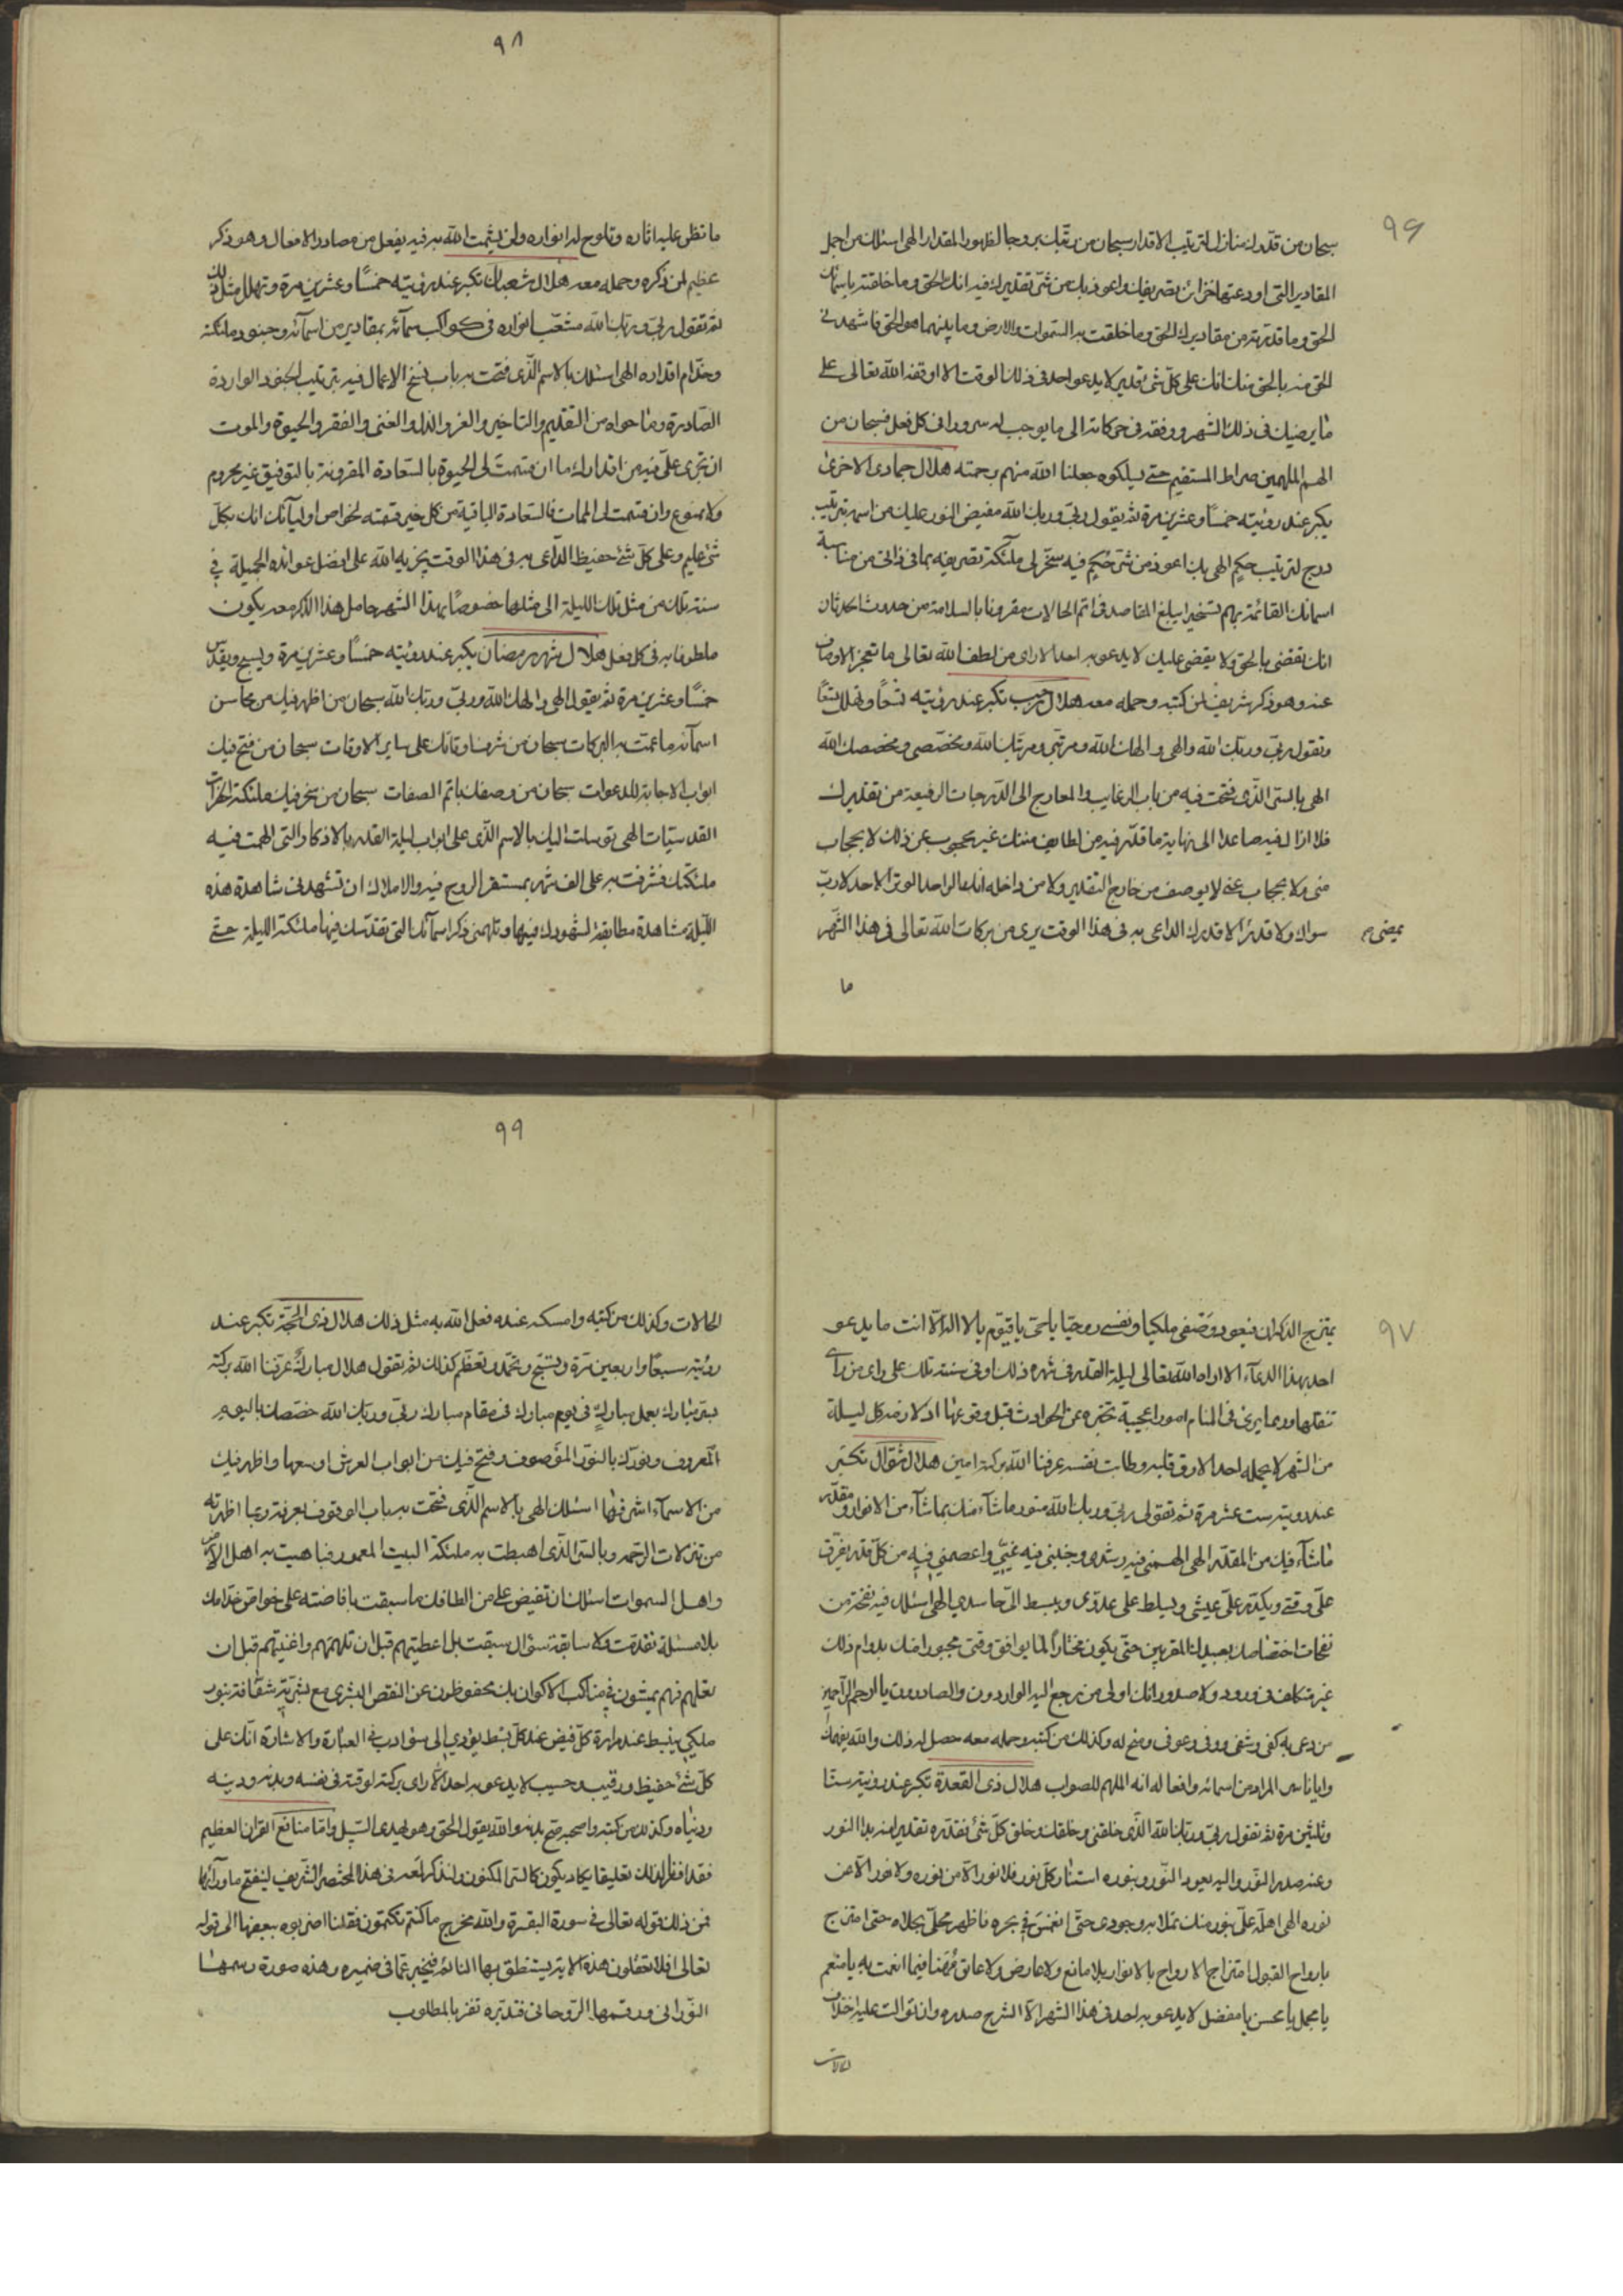 ٩٦
سبحان من قدرك منازل لترتيب الاقدار سبحان من رتبك بروجا لظهور المقدار الهى اسئلك من اجل
المقادير التى اودعتها خزائن تصريفك واعوذ بك من شئ تقديرك فيه انك الحق وما خلقته باسمائك
الحق وما قدرته من مقاديرك الحق وما خلقت به السموات والارض وما بينهما هو الحق فاشهدنى
الحق منه بالحق منك انك على كل شئ قدير لا يدعو احد فى ذلك الوقت الا اوقفه الله تعالى على
ما يرضيك فى ذلك الشهر ووفقه فى حركاته الى ما يوجب له سرورا فى كل فعل فسبحان من
الهم الملهمين صراط المستقيم حتى يسلكوه جعلنا الله منهم برحمته هلال جمادى الاخرى
يكبر عند رؤيته خمسًا وعشرين مرة ثم يقول ربى وربك الله مفيض النور عليك من اسمه بترتيب
درج لترتيب حكيم الهى بك اعوذ من شر حكيم فيه سخر لى ملآئكة تصريفه بما فى ذاتى من مناسبة
اسمائك القائمة بهم تسخيرا يبلغ المقاصد فى اتم الحالات مقرونا بالسلامة من حدوث الحدثان
انك تقضى بالحق ولا يقضى عليك لا يدعو به احد الا راى من لطف الله تعالى ما تعجز الاوصاف
عنه وهو ذكر شريف لمن كتبه وحمله معه هلال رجب تكبر عند رؤيته تسعًا وتهلل تسعًا
وتقول ربى وربك الله والهى والهك الله ومرتبى ومرتبك الله ومخصصى ومخصصك الله
الهى بالسر الذى فتحت فيه من باب الرغايب والمعارج الى الدرجات الرفيعة من تقديرك
فلا ازال فيه صاعدا الى نهاية ما قدر فيه من لطايف مننك غير محجوب عن ذلك لا بحجاب
منى ولا بحجاب عنى لا يوصف من خارج التقدير ولا من داخله انك الواحد الوتر الاحد لا رب
سواك ولا قدير الا قديرك الداعى به فى هذا الوقت يرى من بركات الله تعالى فى هذا الشهر
ما
٩٨
ما تظهر عليه اثاره وتلوح له انواره ولن يشمت الله به فيه بفعل من مصادر الافعال وهو ذكر
عظيم لمن ذكره وحمله معه هلال شعبان تكبر عند رؤيته خمسًا وعشرين مرة وتهلل مثل ذلك
ثم تقول ربى وربك الله مشعب انواره فى كواكب سمآئه بمقادير من اسمآئه وجنود ملئكة
وخدام اقداره الهى اسئلك بالاسم الذى فتحت به باب نسخ الاعمال فيه بترتيب الجنود الواردة
الصادرة وما حواه من التقديم والتاخير والعز والذل والغنى والفقر والحيوة والموت
ان تجرى على فيه من اقدارك ما ان قسمت لى الحيوة بالسعادة المقرونة بالتوفيق غير محروم
ولا ممنوع وان قسمت لى الممات فالسعادة الباقية من كل خير قسمته لخواص اوليآئك انك بكل
شئ عليم وعلى كل شئ حفيظ الداعى به فى هذا الوقت يجزيه الله على افضل عوائده الجميلة فى
سنته تلك من مثل تلك الليلة الى مثلها خصوصًا بهذا الشهر حامل هذا الذكر معه يكون
ملطوفا به فى كل فعل هلال شهر رمضان يكبر عند رؤيته خمسًا وعشرين مرة ويسبح ويقدس
خمسًا وعشرين مرة ثم يقول الهى والهك الله وربى وربك الله سبحان من اظهر فيك من محاسن
اسمآئه ما عمت به البركات سبحان من شرف اوقاتك على ساير الاوقات سبحان من فتح فيك
ابواب الاجابة للدعوات سبحان من وصفك باتم الصفات سبحان من سخر فيك ملئكة الخيرات
القدسيات الهى توسلت اليك بالاسم الذى على ابواب ليلة القدر بالاذكار التى الهمت فيه
ملئكتك فشرفت به على الف شهر بمستقر الروح فيه والاملاك ان تشهدنى مشاهدة هذه
الليلة مشاهدة مطابقة لشهودك فيها وتلهمنى ذكر اسمآئك التى تقدسك فيها ملئكة الليلة حتى
٩٧
يمتزج الذكران فيعود وصفى ملكيا ونفسى روحيا يا حى يا قيوم يا لا اله الا انت ما يدعو
احد بهذا الدعآء الا اراه الله تعالى ليلة القدر فى شهره ذلك او فى سنته تلك على راى من راى
تنقلها وربما يرى فى المنام امورا عجيبة تخبره عن الحوادث قبل وقوعها اذكار ضد كل ليلة
من الشهر لا يحمله احد الا رق قلبه وطابت نفسه عرفنا الله بركة امين هلال شوال تكبر
عند رويته ست عشر مرة ثم تقول ربى وربك الله منور ماشآء منك بماشآء من الانوار ومقدر
ماشآء فيك من المقدر الهى الهمنى فيه رشدى وجنبنى فيه غيى واعصمنى فيه من كل قدر يفرق
على وقتى ويكدر على عيشى ويسلط على عدوى ويبسط الى حاسدى الهى اسئلك فيه نفحة من
نفحات اختصاصك بعبيدك المقربين حتى يكون مختارًا لما يوافق وقتى مجبورا فيك بدوام ذلك
غير متكلف فى ورود ولا صدور انك اولى من يرجع اليه الواردون والصادرون يا ارحم الراحمين
من دعى به كفى وشفى ووفى وعوفى ومنح له وكذلك من كتبه وحمله معه حصل له ذلك والله يفهمك
وايانا سر المراد من اسمائه وافعاله انه الملهم للصواب هلال ذى القعدة تكبر عند رؤيته ستا
وثلثين مرة ثم تقول ربى وربك الله الذى خلقنى وخلقك وخلق كل شئ فقدره تقديرا منه بدا النور
وعنه صدر النور واليه يعود النور وبنوره استنار كل نور فلا نور الا من نوره ولا نور الا عن
نوره الهى اهله على بنور منك تملا به وجودى حتى انغمس فى بحره فاظهر محلى بجلاه حتى امتزج
بارواح القبول امتزاج الارواح بالانوار بلا مانع ولا عارض ولا عائق فيما انعمت به يا منعم
يا مجمل يا محسن يا مفضل لا يدعو به احد فى هذا الشهر الا انشرح صدره وان توالت عليه اختلاف
الحالات
٩٩
الحالات وكذلك من كتبه وامسكه عنده فعل الله به مثل ذلك هلال ذى الحجة تكبر عند
رؤيته سبعًا واربعين مرة وتسبح وتحمد وتعظم كذلك ثم تقول هلال مبارك عرفنا الله بركته
بسر مبارك بعمل مبارك فى يوم مبارك فى مقام مبارك ربى وربك الله خصصك باليوم
المعروف ونورك بالنور الموصوف وفتح فيك من ابواب العرش اوسعها واظهر فيك
من الاسمآء اشرفها اسئلك الهى بالاسم الذى فتحت به باب الوقوف بعرفة وبما اظهرته
من تنزلات الرحمة وبالسر الذى اهبطت به ملئكة البيت المعمور فباهيت به اهل الارض
واهل السموات اسئلك ان تفيض على من الطافك ما سبقت بافاضته على خواص خدامك
بلا مسئلة تقدمت ولا سابقة سؤال سبقت بل اعطيتهم قبل ان تلهمهم واغنيتهم قبل ان
تعلهم فهم يمشون فى مناكب الاكوان بك محفوظون عن النقص البشرى مع بشرية شفافة بنور
ملكى ينبسط عند مرارة كل فيض عند كل بسط يؤدى الى سؤ ادب فى العبارة والاشارة انك على
كل شئ حفيظ ورقيب وحسيب لا يدعو به احد الا راى بركته لوقته فى نفسه وبدنه ودينه
ودنياه وكذلك من كتبه واصحبه مع بدنه والله يقول الحق وهو يهدى السبيل واما منافع القران العظيم
فقد افردنا لذلك تعليقا يكاد يكون كالسر المكنون ولنذكر لمعه فى هذا المختصر الشريف ليفتح ما ورآئها
فمن ذلك قوله تعالى فى سورة البقرة والله مخرج ما كنتم تكتمون فقلنا اضربوه ببعضها الى قوله
تعالى افلا تعقلون هذه الاية يستنطق بها النائم فيخبر عما فى ضميره وهذه صورة رسمها
النورانى ورقمها الروحانى فتدبره تفز بالمطلوب